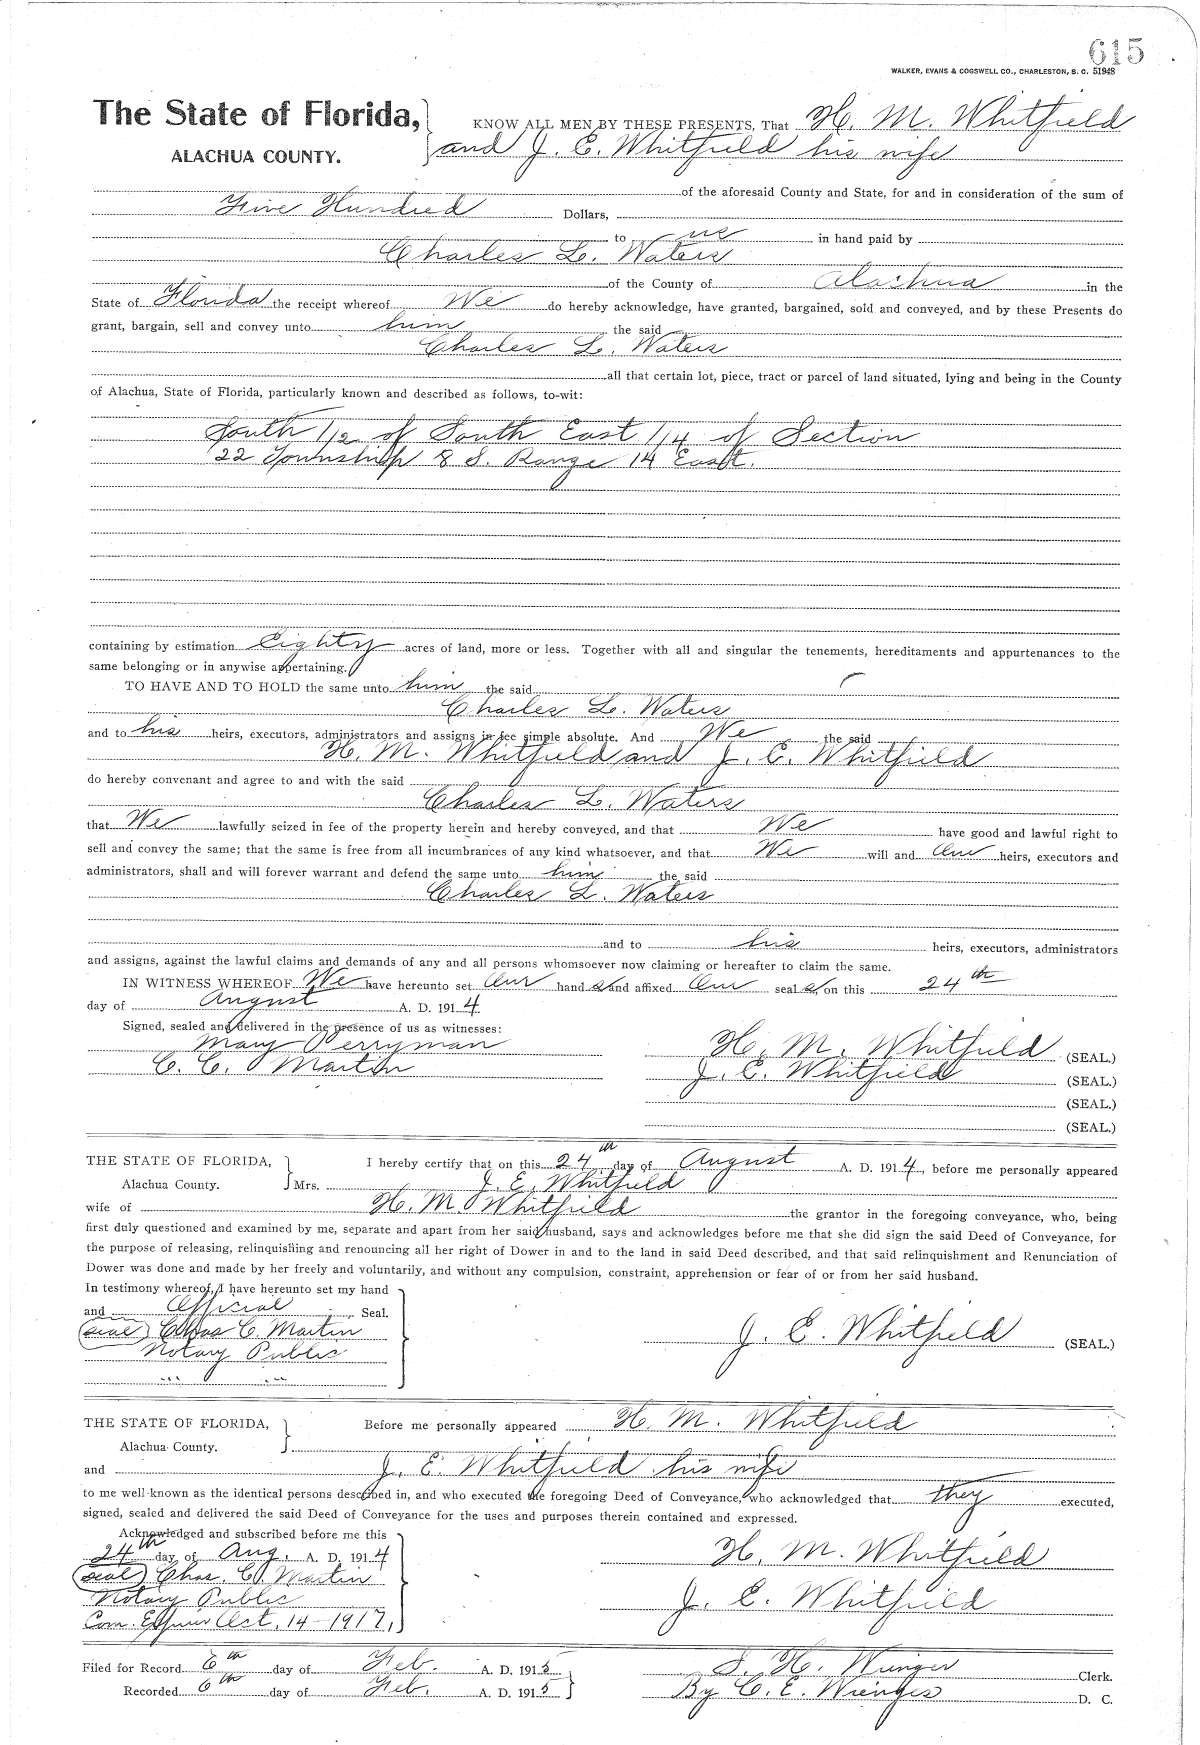 615
WALKER, EVANS & COGSWELL CO., CHARLESTON, S. C. 51948
The State of Florida, KNOW ALL MEN BY THESE PRESENTS, That H. M. Whitfield
ALACHUA COUNTY. and J. E. Whitfield his wife
of the aforesaid County and State, for and in consideration of the sum of
Five Hundred Dollars,
to us in hand paid by
Charles L. Waters
of the County of Alachua in the
State of Florida the receipt whereof We do hereby acknowledge, have granted, bargained, sold and conveyed, and by these Presents do
grant, bargain, sell and convey unto him the said
Charles L. Waters
all that certain lot, piece, tract or parcel of land situated, lying and being in the County
of Alachua, State of Florida, particularly known and described as follows, to-wit:
South 1/2 of South East 1/4 of Section
22 Township 8 S. Range 14 East.
containing by estimation Eighty acres of land, more or less. Together with all and singular the tenements, hereditaments and appurtenances to the
same belonging or in anywise appertaining.
TO HAVE AND TO HOLD the same unto him the said
Charles L. Waters
and to his heirs, executors, administrators and assigns in fee simple absolute. And We the said
H. M. Whitfield and J. E. Whitfield
do hereby convenant and agree to and with the said
Charles L. Waters
that We lawfully seized in fee of the property herein and hereby conveyed, and that We have good and lawful right to
sell and convey the same; that the same is free from all incumbrances of any kind whatsoever, and that We will and Our heirs, executors and
administrators, shall and will forever warrant and defend the same unto him the said
Charles L. Waters
and to his heirs, executors, administrators
and assigns, against the lawful claims and demands of any and all persons whomsoever now claiming or hereafter to claim the same.
IN WITNESS WHEREOF We have hereunto set Our hand s and affixed Our seal s, on this 24th
day of August A. D. 1914.
Signed, sealed and delivered in the presence of us as witnesses:
Mary Perryman H. M. Whitfield (SEAL.)
C. C. Martin J. E. Whitfield (SEAL.)
(SEAL.)
(SEAL.)
THE STATE OF FLORIDA, I hereby certify that on this 24th day of August A. D. 1914, before me personally appeared
Alachua County. Mrs. J. E. Whitfield
wife of H. M. Whitfield the grantor in the foregoing conveyance, who, being
first duly questioned and examined by me, separate and apart from her said husband, says and acknowledges before me that she did sign the said Deed of Conveyance, for
the purpose of releasing, relinquishing and renouncing all her right of Dower in and to the land in said Deed described, and that said relinquishment and Renunciation of
Dower was done and made by her freely and voluntarily, and without any compulsion, constraint, apprehension or fear of or from her said husband.
In testimony whereof, I have hereunto set my hand
and Official Seal.
(seal) Chas C. Martin J. E. Whitfield (SEAL.)
Notary Public
THE STATE OF FLORIDA, Before me personally appeared H. M. Whitfield
Alachua County.
and J. E. Whitfield his wife
to me well known as the identical persons described in, and who executed the foregoing Deed of Conveyance, who acknowledged that they executed,
signed, sealed and delivered the said Deed of Conveyance for the uses and purposes therein contained and expressed.
Acknowledged and subscribed before me this
24th day of Aug. A. D. 1914 H. M. Whitfield
(seal) Chas. C. Martin
Notary Public J. E. Whitfield
Com. Expires Oct. 14-1917.
Filed for Record 6th day of Feb. A. D. 1915 S. H. Clerk.
Recorded 6th day of Feb. A. D. 1915 By C. E. D. C.